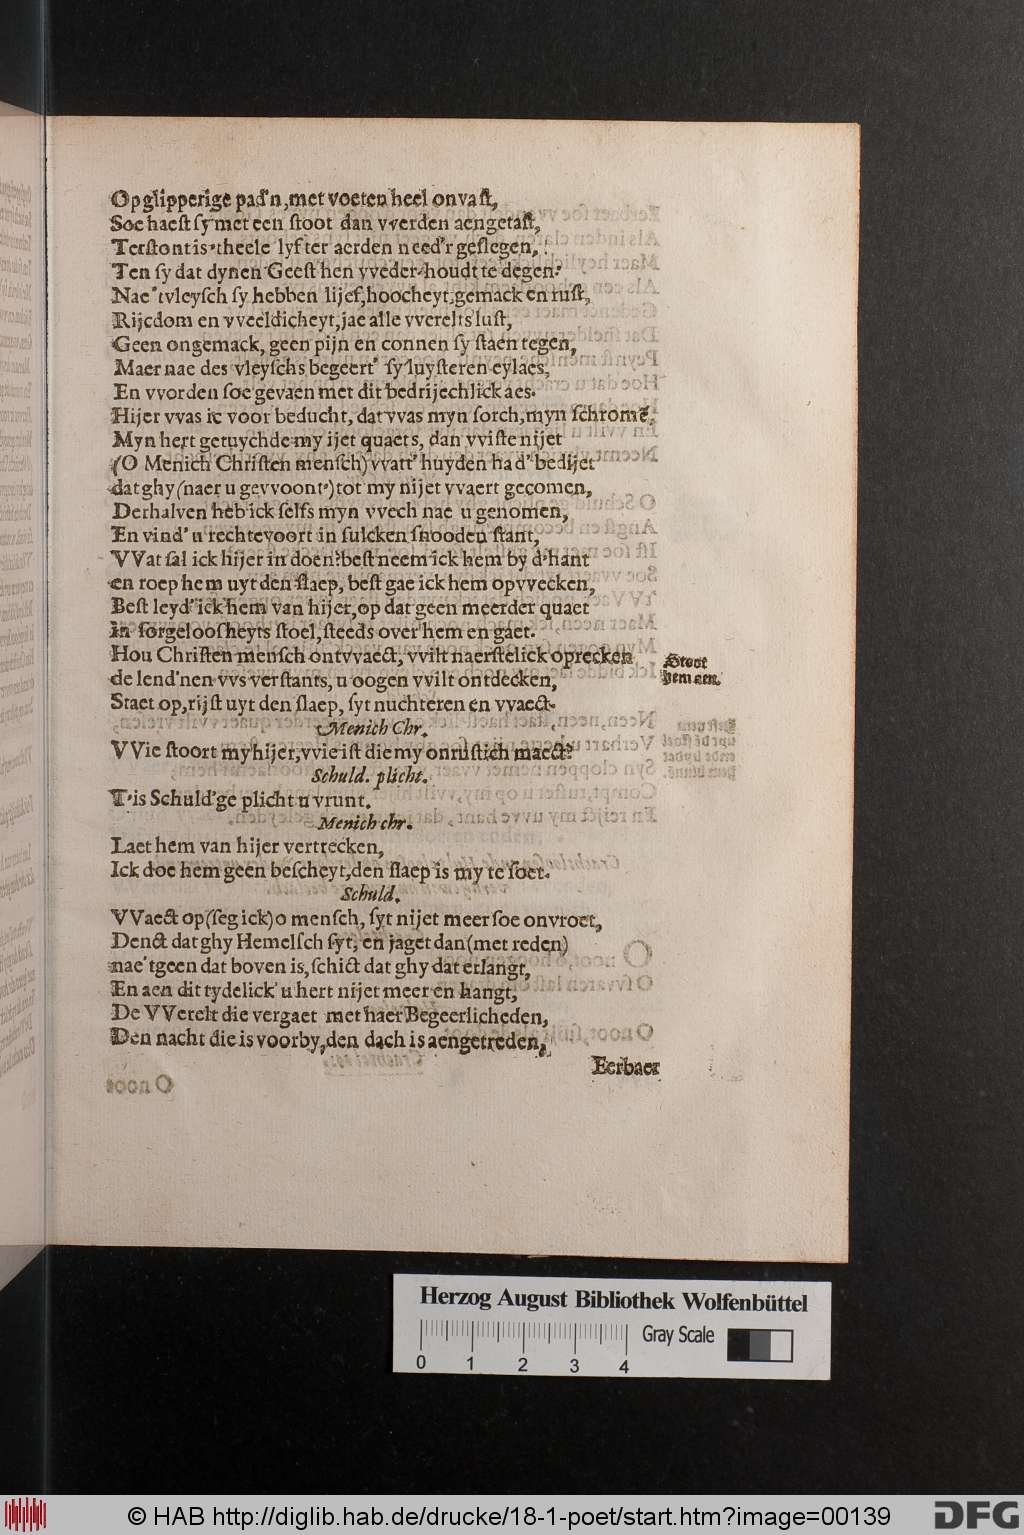 Op glipperige pad'n, met voeten heel onvaſt,
Soe haeſt ſy met een ſtoot dan vverden aengetaſt,
Terſtont is 'theele lyf ter aerden need'r geſlegen,
Ten ſy dat dynen Geeſt hen vveder-houdt te degen.
Nae 'tvleyſch ſy hebben lijef, hoocheyt, gemack en ruſt,
Rijcdom en vveeldicheyt, jae alle vverelts luſt,
Geen ongemack, geen pijn en connen ſy ſtaen tegen,
Maer nae des vleyſchs begeert' ſy luyſteren eylaes,
En vvorden ſoe gevaen met dit bedrijechlick aes.
Hijer vvas ic voor beducht, dat vvas myn ſorch, myn ſchromē,
Myn hert getuychde my ijet quaets, dan vviſte nijet
(O Menich Chriſten menſch) vvatt' huyden had' bedijet
dat ghy (naer u gevvoont') tot my nijet vvaert gecomen,
Derhalven heb ick ſelfs myn vvech nae u genomen,
En vind' u rechtevoort in ſulcken ſnooden ſtant,
VVat ſal ick hijer in doen? beſt neem ick hem by d'hant
en roep hem uyt den ſlaep, beſt gae ick hem opvvecken,
Beſt leyd' ick hem van hijer, op dat geen meerder quaet
in ſorgelooſheyts ſtoel, ſteeds over hem en gaet.
Hou Chriſten menſch ontvvaect, vvilt naerſtelick oprecken
de lend'nen vvs verſtants, u oogen vvilt ontdecken,
Staet op, rijſt uyt den ſlaep, ſyt nuchteren en vvaect.
Stoot
hem aen.
Menich Chr.
VVie ſtoort my hijer, vvie iſt die my onruſtich maect?
Schuld. plicht.
T'is Schuld'ge plicht u vrunt.
Menich chr.
Laet hem van hijer vertrecken,
Ick doe hem geen beſcheyt, den ſlaep is my te ſoet.
Schuld.
VVaect op (ſeg ick) o menſch, ſyt nijet meer ſoe onvroet,
Denct dat ghy Hemelſch ſyt, en jaget dan (met reden)
nae 'tgeen dat boven is, ſchict dat ghy dat erlangt,
En aen dit tydelick' u hert nijet meer en hangt,
De VVerelt die vergaet met haer Begeerlicheden,
Den nacht die is voorby, den dach is aengetreden,
Eerbaer
Herzog August Bibliothek Wolfenbüttel
Gray Scale
0 1 2 3 4
© HAB http://diglib.hab.de/drucke/18-1-poet/start.htm?image=00139
DFG